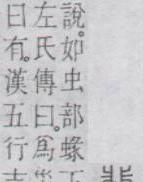 說。如虫部蝝
左氏傳曰。爲
曰有。漢五行